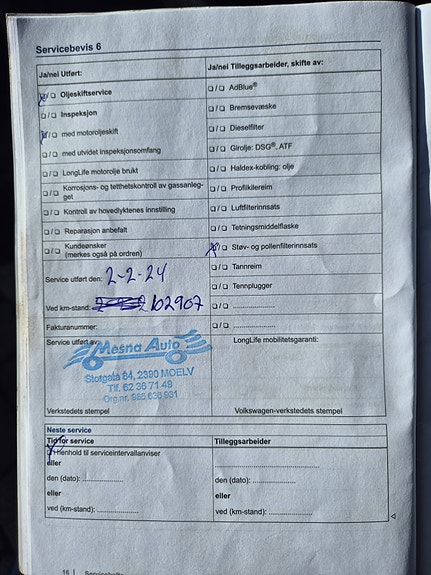 Servicebevis 6
Ja/nei Utført:
Ja/nei Tilleggsarbeider, skifte av:
❏/❏ Oljeskiftservice
❏/❏ AdBlue®
❏/❏ Inspeksjon
❏/❏ Bremsevæske
❏/❏ med motoroljeskift
❏/❏ Dieselfilter
❏/❏ med utvidet inspeksjonsomfang
❏/❏ Girolje: DSG®, ATF
❏/❏ LongLife motorolje brukt
❏/❏ Haldex-kobling: olje
❏/❏ Korrosjons- og tetthetskontroll av gassanleg-
get
❏/❏ Profilkilereim
❏/❏ Kontroll av hovedlyktenes innstilling
❏/❏ Luftfilterinnsats
❏/❏ Reparasjon anbefalt
❏/❏ Tetningsmiddelflaske
❏/❏ Kundeønsker
(merkes også på ordren)
❏/❏ Støv- og pollenfilterinnsats
Service utført den: 2-2-24
❏/❏ Tannreim
❏/❏ Tennplugger
Ved km-stand: 102907
❏/❏ ....................
Fakturanummer:
❏/❏ ....................
Service utført av:
LongLife mobilitetsgaranti:
Mesna Auto
Storgata 84, 2390 MOELV
Tlf. 62 36 71 49
Org.nr. 985 636 931
Verkstedets stempel
Volkswagen-verkstedets stempel
Neste service
Tid for service
Tilleggsarbeider
❏ I henhold til serviceintervallanviser
eller
den (dato): ....................
den (dato): ....................
eller
eller
ved (km-stand): ....................
ved (km-stand): ....................
16 | Servicehefte